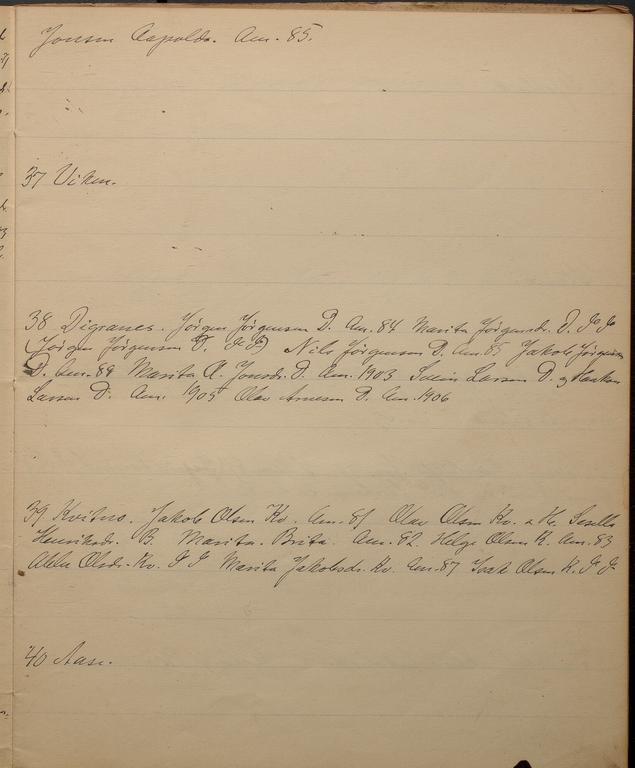 Jonsen Aspolds. Am. 85.
37 Viken.
38 Digranes. Jörgen Jörgensen D. Am. 84 Marita Jörgensdr. D. do do
(Jörgen Jörgensen D. do do) Nils Jörgensen D. Am. 85 Jakob Jörgensen
D. Am. 89 Marita A. Jonsdr. D. Am. 1903 Svein Larsen D. og Haakon
Larsen D. Am. 1905 Olav Arnesen D. Am. 1906
39 Kvitno. Jakob Olsen Kv. Am. 81 Olav Olsen Kv. Sesella
Henriksdr. B. Marita. Brita. Am. 82. Helge Olsen K. Am. 83
Olsdr. Kv. Marita Jakobsdr. Kv. Am. 87 Ivar Olsen K.
40 Aase.